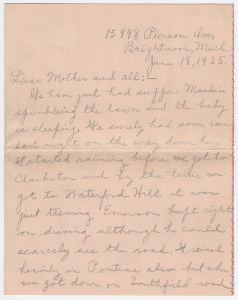 15998 Pierson Ave,
Brightmoor, Mich.
June 18, 1925.
Dear Mother and all:—
We have just had supper Maude is
sprinkling the lawn and the baby
is sleeping. We surely had some rain
last night on the way down here
It started raining before we got to
Clarkston and by the time we
got to Waterford Hill it was
just teeming. Emerson kept right
on driving although he could
scarcely see the road. It rained
heavily in Pontiac also but when
we got down on Southfield road